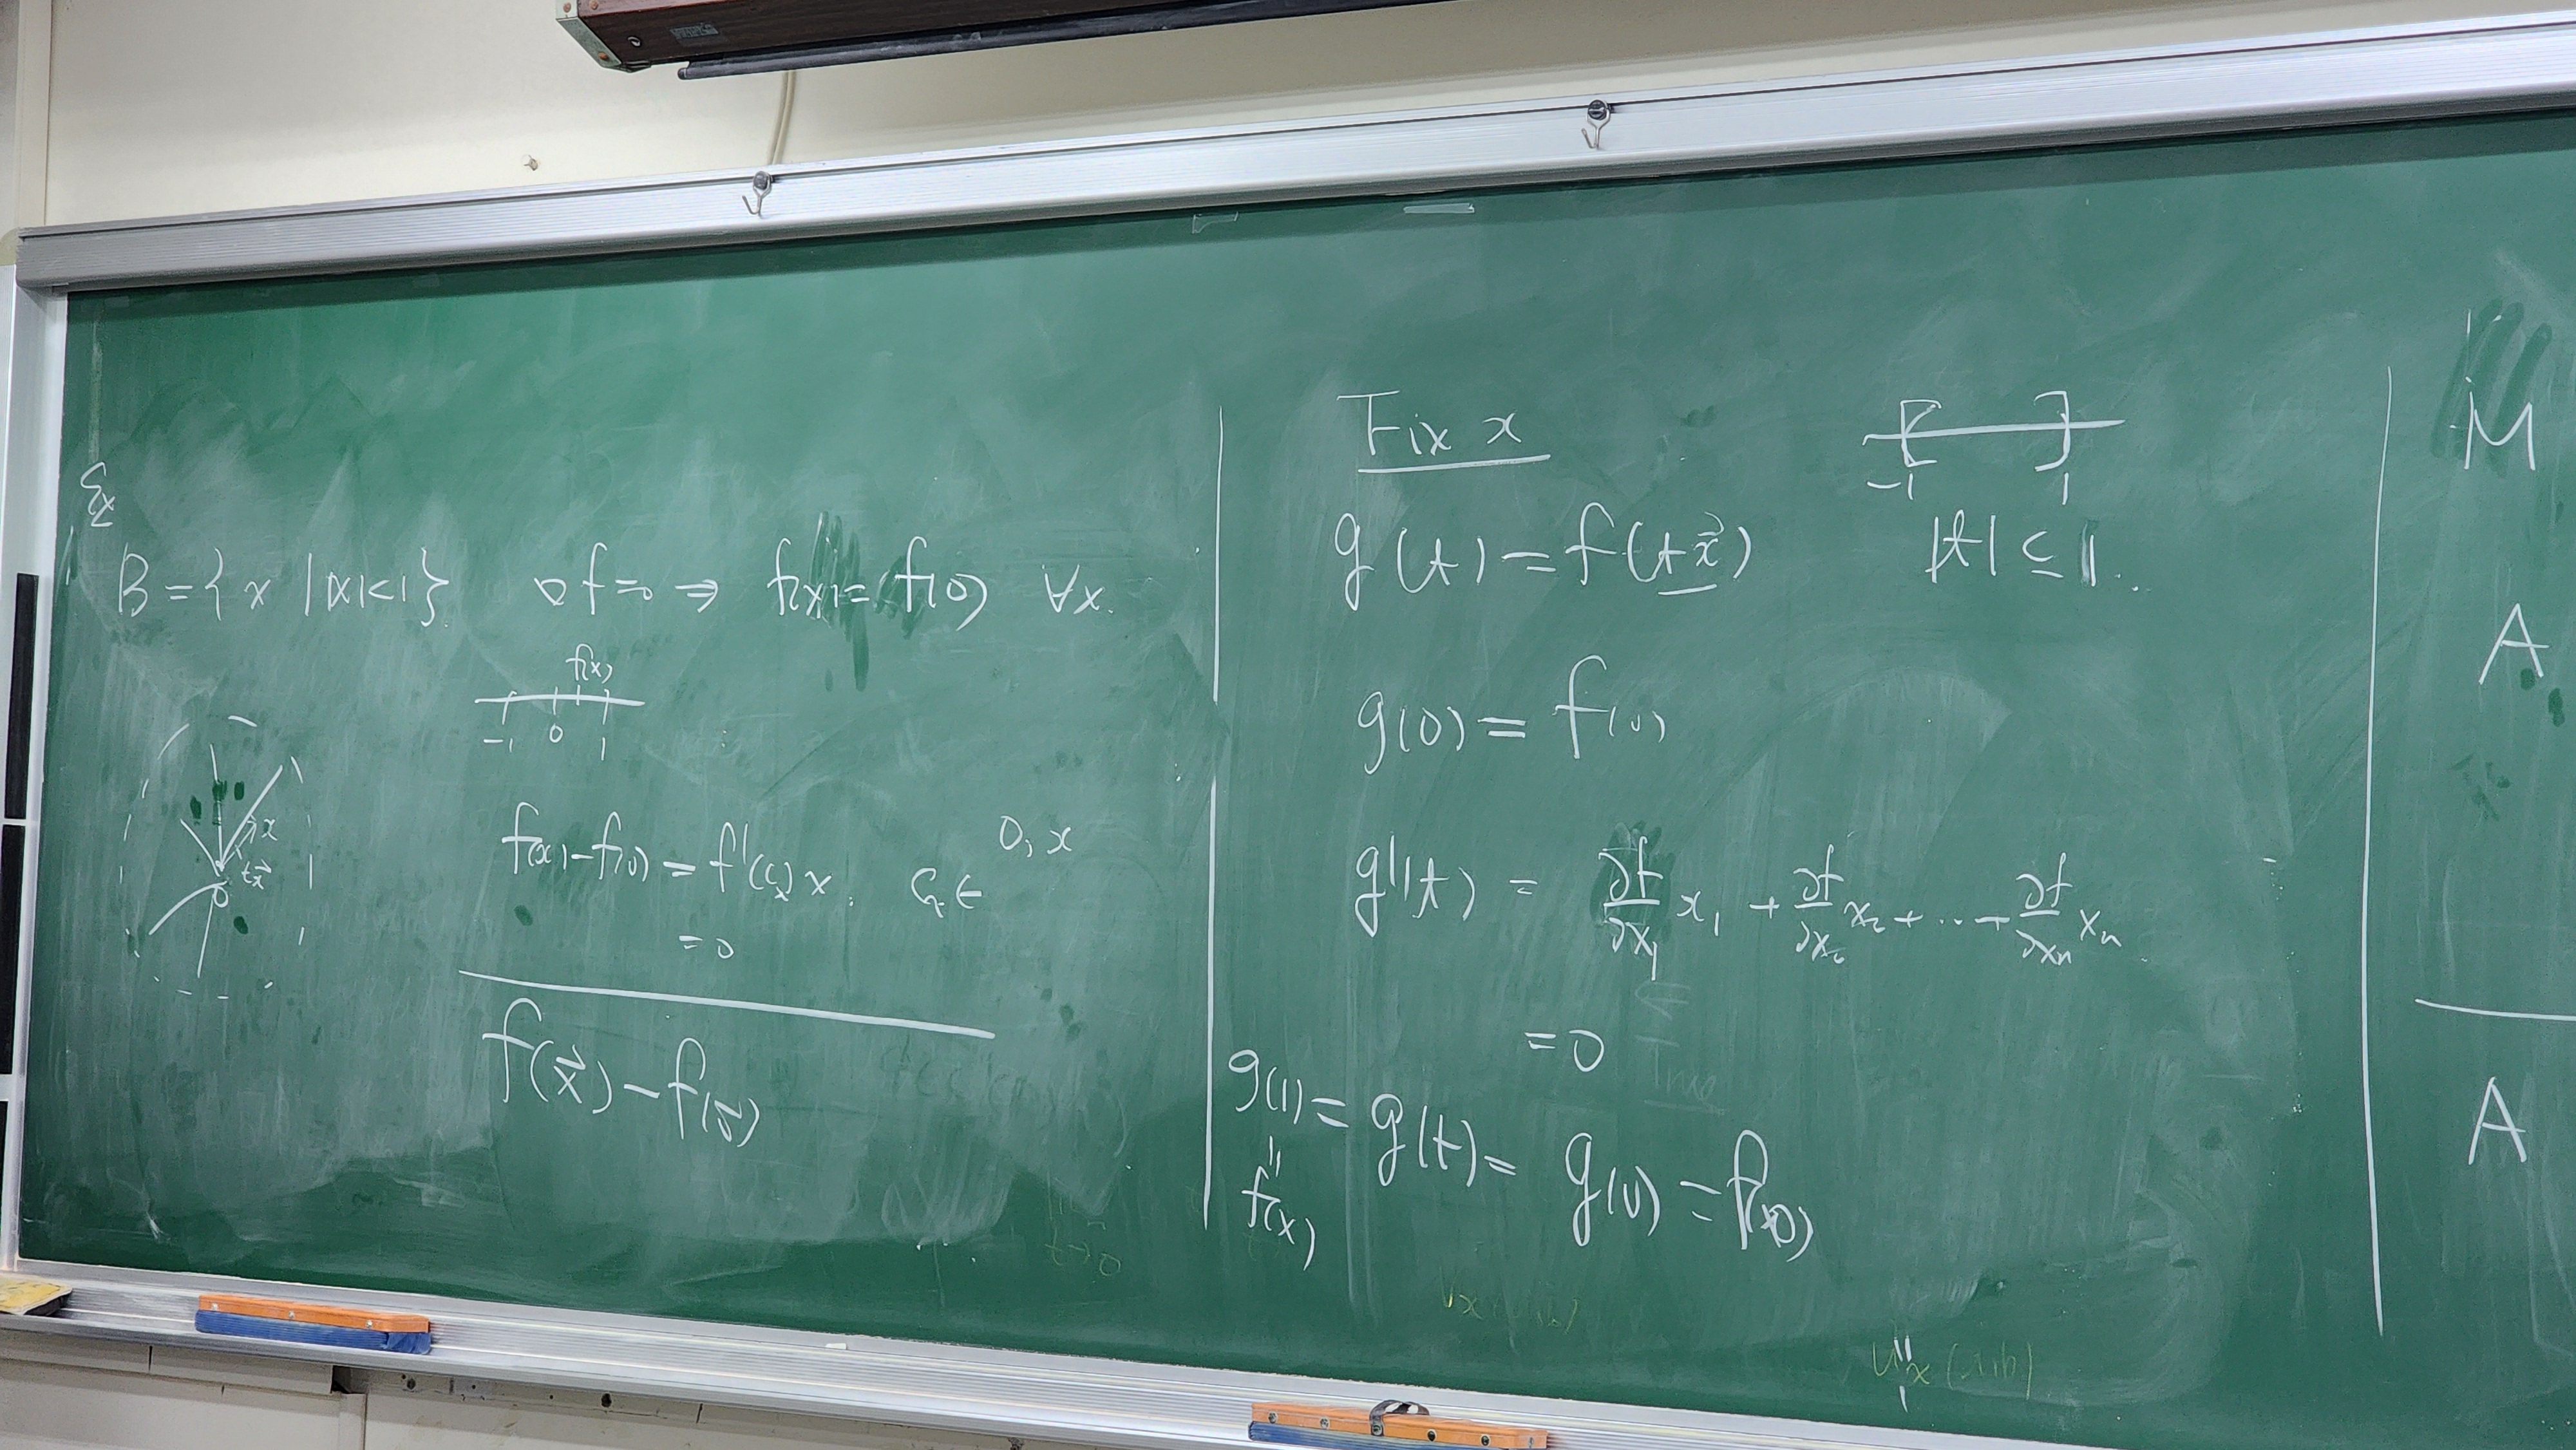 Ex
B = {x | |x|<1} ∇f=0 ⇒ f(x)=f(0) ∀x.
f(x)
-1 0 1
x
t\vec{x}
0
f(x)-f(0) = f'(c_x)x. c_x ∈ 0, x
=0
f(\vec{x})-f(\vec{0})
Fix x
-1 1
g(t) = f(t\vec{x}) |t| ≤ 1..
g(0) = f(0)
g'(t) = \frac{∂f}{∂x_1} x_1 + \frac{∂f}{∂x_2} x_2 + ... + \frac{∂f}{∂x_n} x_n
=0
g(1) = g(t) = g(0) = f(0)
"
f(x)
M
A
A